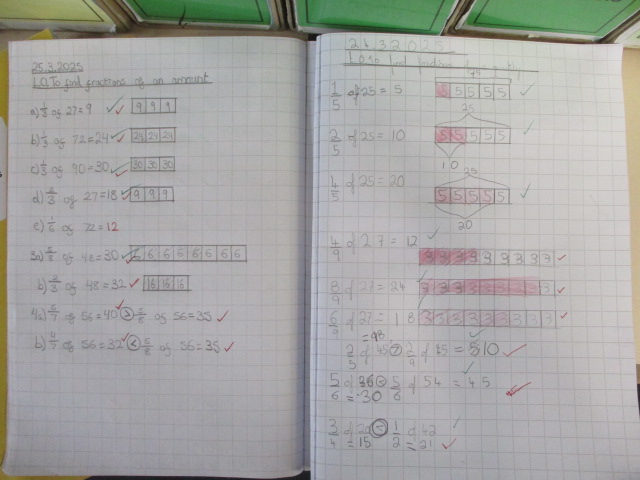 25.3.2025
L.O. To find fractions of an amount
a) 1/3 of 27 = 9 9 9 9
b) 1/3 of 72 = 24 24 24 24
c) 1/3 of 90 = 30 30 30 30
d) 2/3 of 27 = 18 9 9 9
e) 1/6 of 72 = 12
3a) 5/8 of 48 = 30 6 6 6 6 6 6 6 6
b) 2/3 of 48 = 32 16 16 16
4a) 5/7 of 56 = 40 > 5/8 of 56 = 35
b) 4/7 of 56 = 32 < 5/8 of 56 = 35
L.O. To find
1/5 of 25 = 5 5 5 5 5 5
25
2/5 of 25 = 10 5 5 5 5 5
10
25
4/5 of 25 = 20 5 5 5 5 5
20
4/9 of 27 = 12
3 3 3 3 3 3 3 3 3
8/9 of 27 = 24 3 3 3 3 3 3 3 3 3
6/9 of 27 = 18 3 3 3 3 3 3 3 3 3
5/6 of 36 < 5/6 of 54 = 45
= 30
3/4 of 20 < 1/2 of 42
= 15 = 21